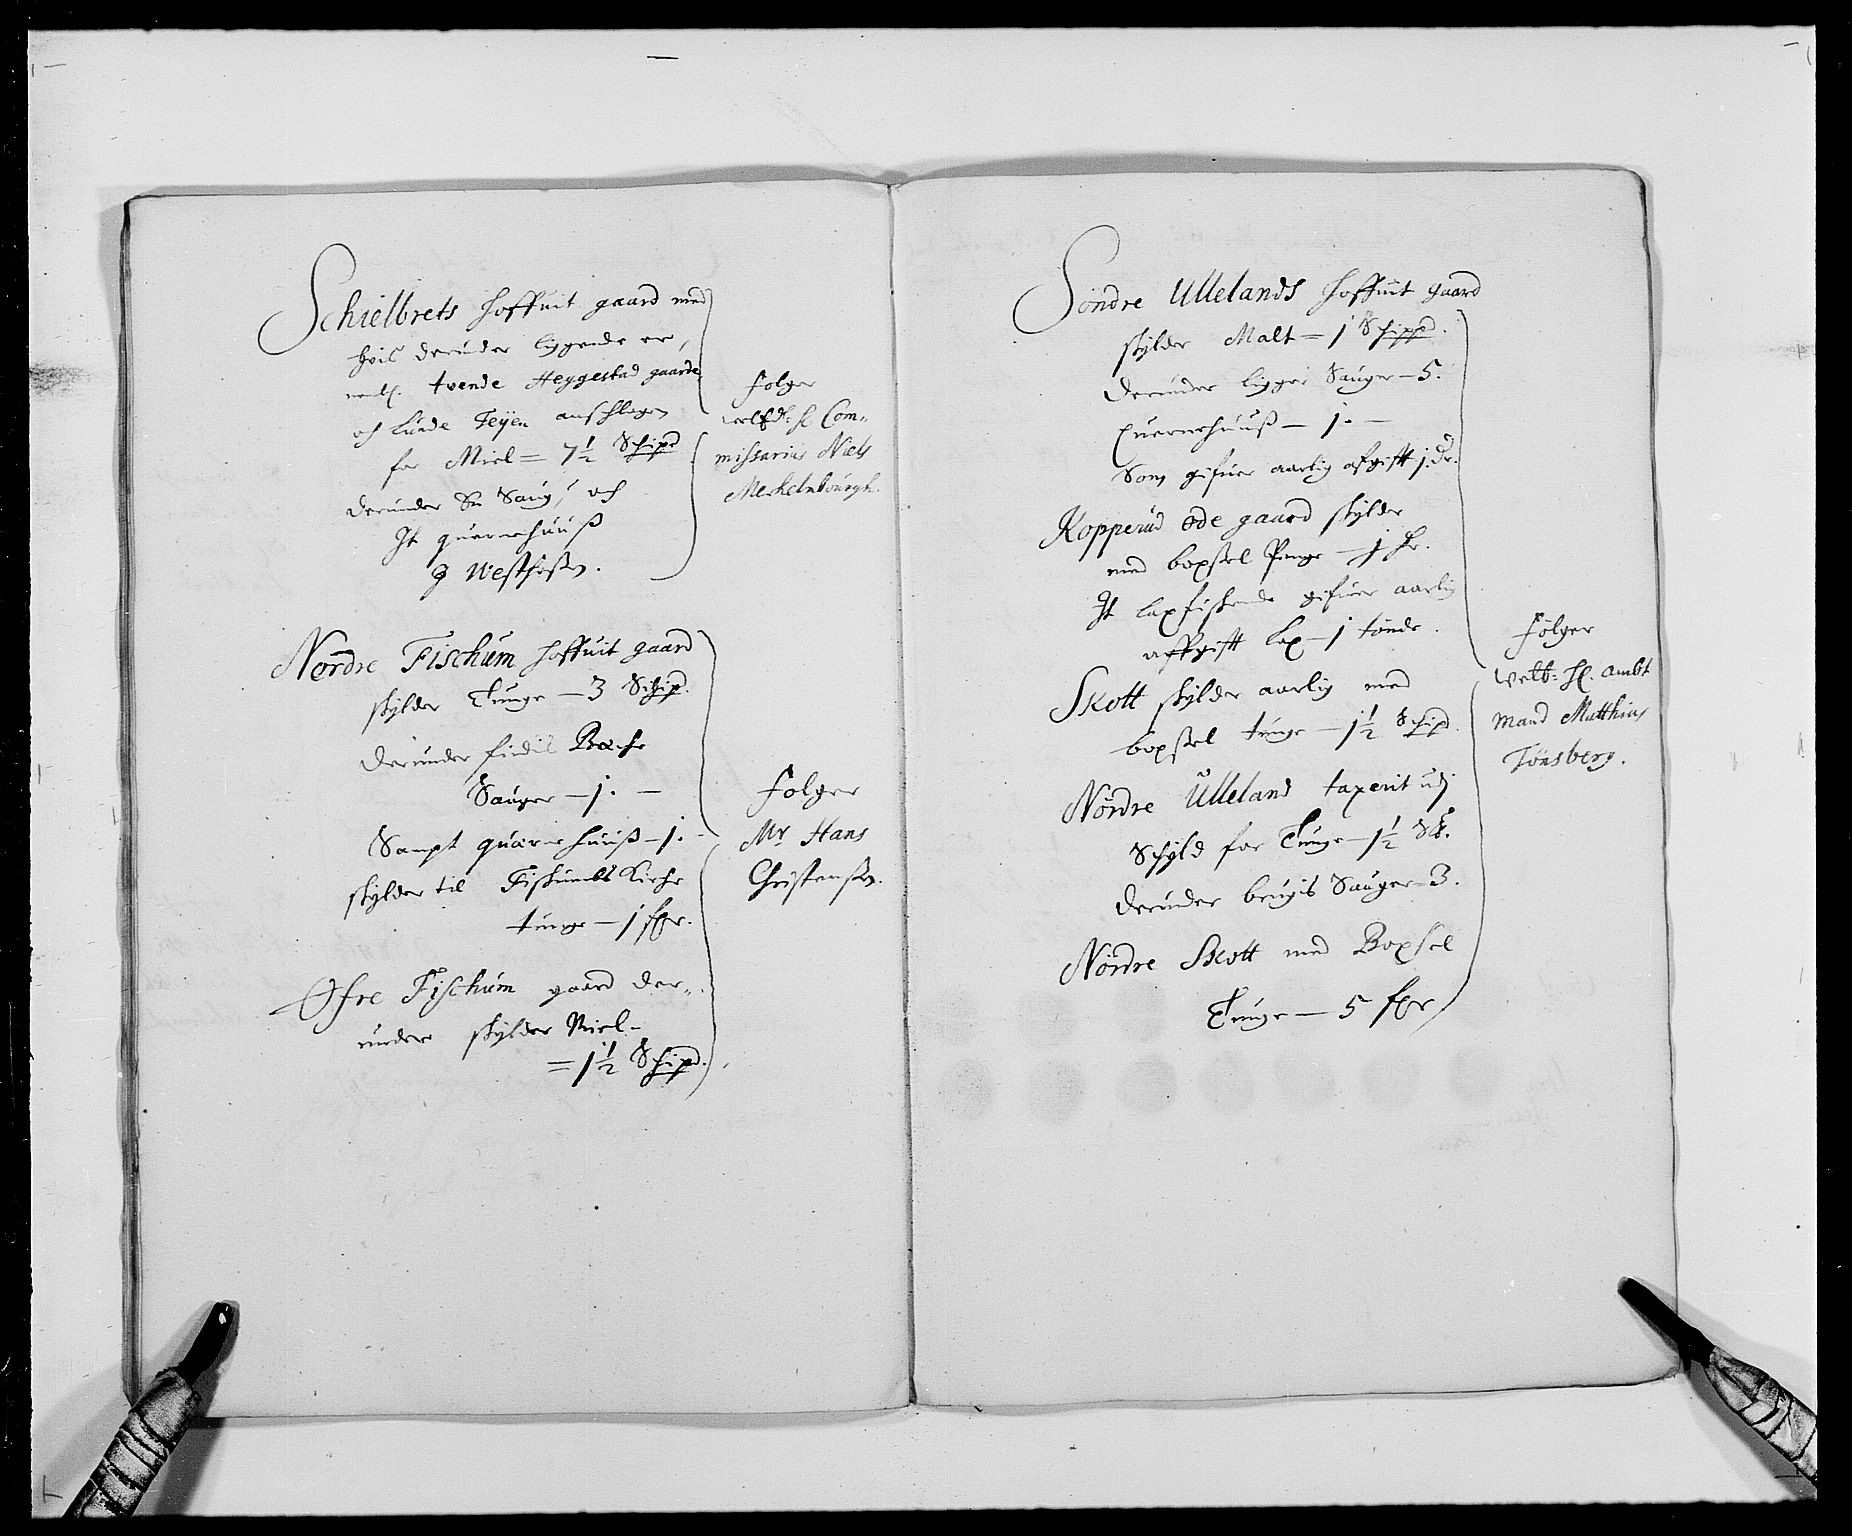 Schielbrets hoffuit gaard med
hvis derunder liggende er,
nemlig. tvende Heggestad gaarde
och Lunde Teÿen anschlagen
for Miel = 7½ Schipd
derunder En Saug, och
It quernehuuß
J Westfosen.
Følger
welEdl: Hr Com=
missarius Niels
Merkelnbourgh.
Nordre Fischum hoffuit gaard
skylder Tunge — 3 Schipd.
derunder findis Beche
Sauger — j. —
Sampt quærnehuuß — j. —
skylder til Fiskumbs Kirche
tunge — j fzr.
Øfre Fischum gaard der=
under skylder Miel —
= 1½ Schipd.
Følger
Mr Hans
Christensen.
Söndre Ullelands hoffuit gaard
skylder Malt = j Schippd.
derunder ligger Sauger — 5.
Quernehuuß — j. —
Som gifuer aarlig afgift j. dr.
Kopperud öde gaard skylder
med boxsel Penge — j hr.
It laxfiskende gifuer aarlig
affgift lax — j tönde.
Skott skylder aarlig med
boxsel tunge — 1½ Schipd.
Nordre Ulleland taxerit udj
Schyld for Tunge — 1½ Sk.
derunder brugis Sauger — 3.
Nordre Skott med Boxsel
Tunge — 5 fzr
Følger
welb: Hr. ambt
mand Matthias
Tönsberg.